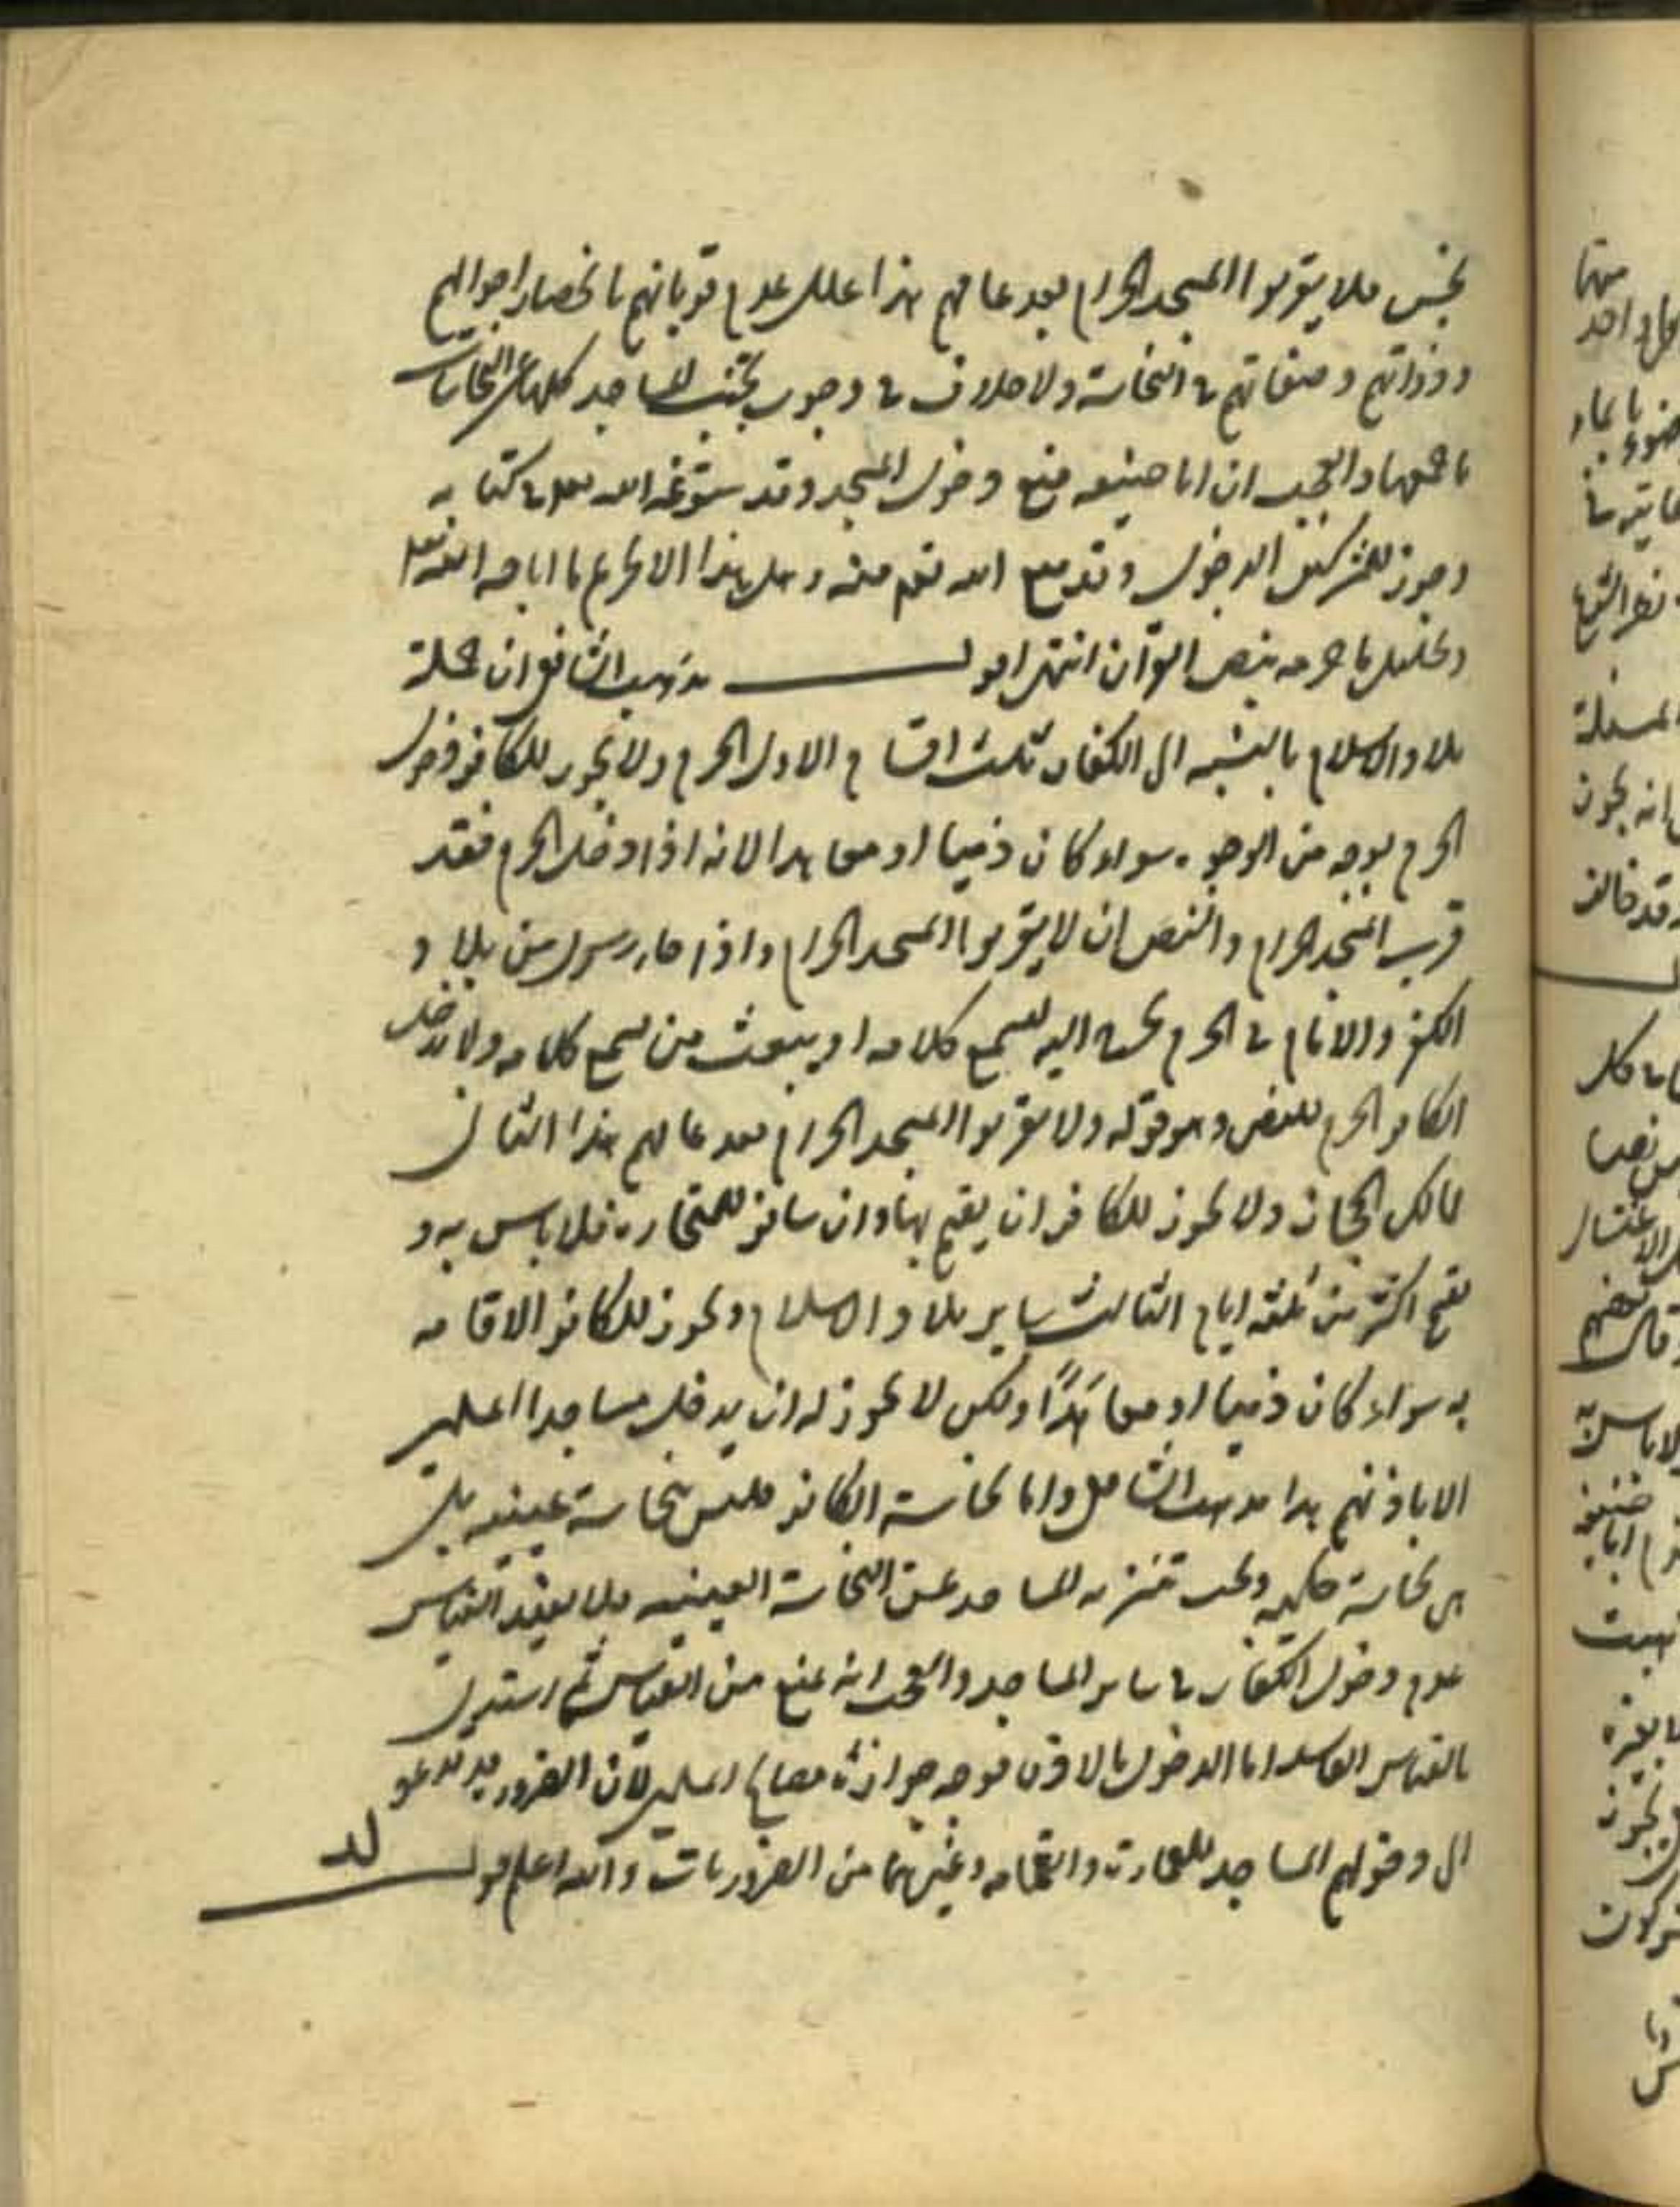 نجس فلا يقربوا المسجد الحرام بعد عامهم هذا علل عدم قربانهم بانحصار احوالهم
وذواتهم وصفاتهم في النجاسة ولا خلاف في وجوب تجنب المساجد كلها عن النجاسات
باجمعها والعجب ان ابا حنيفه منع دخول المسجد وقد سوغه الله تعالى في كتابه
وجوز للمشركين الدخول وقد منع الله تعالى منه وهل هذا الا تحريم ما اباحه الله تعالى
وتحليل ما حرمه بنص القرآن انتهى اقول مذهب الشافعي ان جملة
بلاد الاسلام بالنسبه الى الكفار ثلث اقسام الاول الحرم ولا يجوز للكافر دخول
الحرم بوجه من الوجوه سواء كان ذميا او معاهدا لانه اذا دخل الحرم فقد
قرب المسجد الحرام والنص ان لا يقربوا المسجد الحرام واذا جاء رسول من بلاد
الكفر والامام في الحرم يخرج اليه ليسمع كلامه او يبعث من يسمع كلامه ولا يدخل
الكافر الحرم للنص وهو قوله ولا يقربوا المسجد الحرام بعد عامهم هذا الثاني
ممالك الحجاز ولا يجوز للكافر ان يقيم بها وان سافر للتجارة فلا باس به و
يقيم اكثر من ثلثة ايام الثالث ساير بلاد الاسلام ويجوز للكافر الاقامه
به سواء كان ذميا او معاهدًا ولكن لا يجوز له ان يدخل مساجد المسلمين
الا باذنهم هذا مذهب الشافعي واما نجاسة الكافر فليس نجاسة عينيه بل
هي نجاسة حكميه ويجب تنزيه المساجد عن النجاسة العينيه فلا يفيد القياس
عدم دخول الكفار في ساير المساجد والعجب انه يمنع من القياس ثم استدل
بالقياس الفاسد اما الدخول بالاذن فوجه جوازه مصالح المسلمين لان الضرورة قد تدعو
الى دخولهم المساجد للعمارة والقمامه وغيرهما من الضروريات والله اعلم قوله